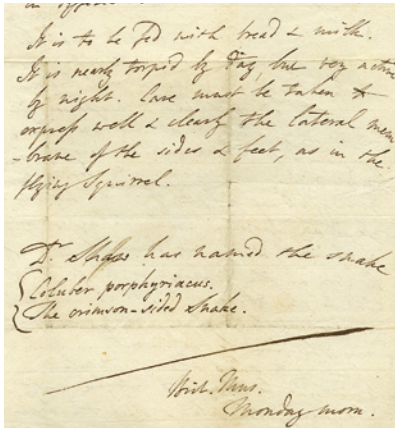 It is to be fed with bread & milk.
It is nearly torpid by day, but very active
by night. Care must be taken to
express well & clearly the lateral mem
-brane of the sides & feet, as in the
flying Squirrel.
Dr Shaw has named the snake
Coluber porphyriacus.
The crimson-sided Snake.
Brit. Mus.
Monday morn.